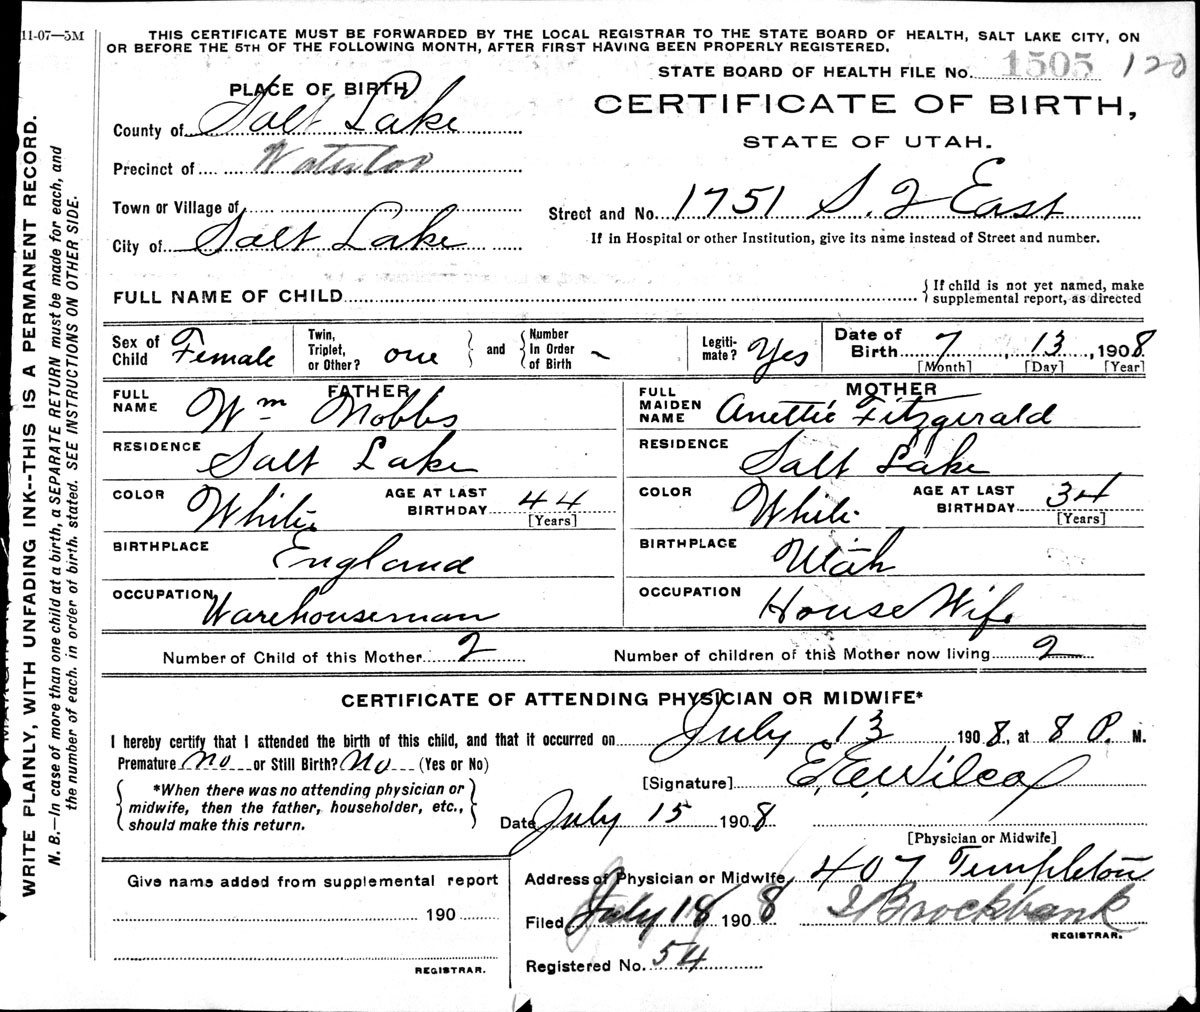 11-07—5M
THIS CERTIFICATE MUST BE FORWARDED BY THE LOCAL REGISTRAR TO THE STATE BOARD OF HEALTH, SALT LAKE CITY, ON
OR BEFORE THE 5TH OF THE FOLLOWING MONTH, AFTER FIRST HAVING BEEN PROPERLY REGISTERED.
STATE BOARD OF HEALTH FILE No. 1505 120
PLACE OF BIRTH
CERTIFICATE OF BIRTH,
STATE OF UTAH.
County of Salt Lake
Precinct of Waterloo
Town or Village of
City of Salt Lake
Street and No. 1751 S. 2 East
If in Hospital or other Institution, give its name instead of Street and number.
FULL NAME OF CHILD
{ If child is not yet named, make
supplemental report, as directed
Sex of Child Female
Twin, Triplet, or Other? one
and
Number In Order of Birth ~
Legiti-mate? Yes
Date of Birth 7, 13, 1908
[Month] [Day] [Year]
FATHER
FULL NAME Wm Nobbs
RESIDENCE Salt Lake
COLOR White
AGE AT LAST BIRTHDAY 44 [Years]
BIRTHPLACE England
OCCUPATION Warehouseman
MOTHER
FULL MAIDEN NAME Anettie Fitzgerald
RESIDENCE Salt Lake
COLOR White
AGE AT LAST BIRTHDAY 34 [Years]
BIRTHPLACE Utah
OCCUPATION House Wife
Number of Child of this Mother 2
Number of children of this Mother now living 2
CERTIFICATE OF ATTENDING PHYSICIAN OR MIDWIFE*
I hereby certify that I attended the birth of this child, and that it occurred on July 13 1908, at 8 P. M.
Premature No or Still Birth? No (Yes or No)
[Signature] E. E. Wilcox
*When there was no attending physician or
midwife, then the father, householder, etc.,
should make this return.
Date July 15 1908
[Physician or Midwife]
Give name added from supplemental report
190
REGISTRAR.
Address of Physician or Midwife, 407 Templeton
Filed July 18 1908
Brockbank
REGISTRAR.
Registered No. 54
WRITE PLAINLY, WITH UNFADING INK--THIS IS A PERMANENT RECORD.
N. B.—In case of more than one child at a birth, a SEPARATE RETURN must be made for each, and
the number of each, in order of birth, stated. SEE INSTRUCTIONS ON OTHER SIDE.